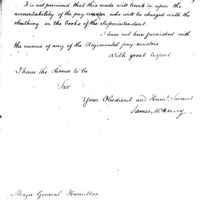 It is not perceived that this mode will break in upon the
accountability of the pay master, who will be charged with the
cloathing on the books of the Superintendent
I have not been furnished with
the names of any of the Regimental pay masters
With great respect
I have the honor to be
Sir
Your Obedient and Humb. Servant
James McHenry
Major General Hamilton